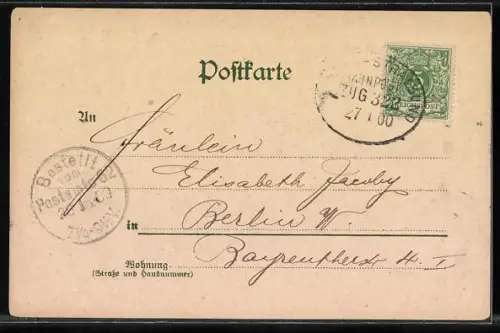 Postkarte
BAHNPOST
ZUG 323
27 1 00
REICHSPOST
An
Fräulein
Elisabeth Jacoby
Berlin W.
in
Bayreutherstr. 4. I
Wohnung
(Straße und Hausnummer)
Bestellt
vom
Postamte